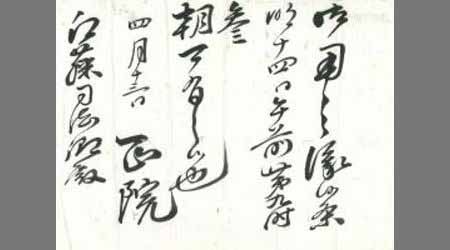 御用之儀候条
明十四日午前第九時
参
朝可有之候也
四月十三日 正院
江藤司法卿殿